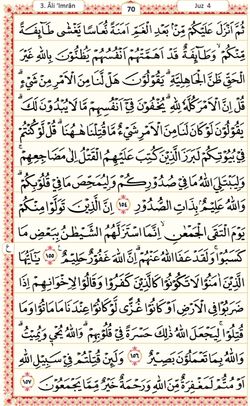 3. Âli 'Imrân 70 Juz 4
ثُمَّ أَنْزَلَ عَلَيْكُمْ مِنْ بَعْدِ الْغَمِّ أَمَنَةً نُعَاسًا يَغْشَى طَائِفَةً
مِنْكُمْ وَطَائِفَةٌ قَدْ أَهَمَّتْهُمْ أَنْفُسُهُمْ يَظُنُّونَ بِاللَّهِ غَيْرَ
الْحَقِّ ظَنَّ الْجَاهِلِيَّةِ يَقُولُونَ هَلْ لَنَا مِنَ الْأَمْرِ مِنْ شَيْءٍ
قُلْ إِنَّ الْأَمْرَ كُلَّهُ لِلَّهِ يُخْفُونَ فِي أَنْفُسِهِمْ مَا لَا يُبْدُونَ لَكَ
يَقُولُونَ لَوْ كَانَ لَنَا مِنَ الْأَمْرِ شَيْءٌ مَا قُتِلْنَا هَهُنَا قُلْ لَوْ كُنْتُمْ
فِي بُيُوتِكُمْ لَبَرَزَ الَّذِينَ كُتِبَ عَلَيْهِمُ الْقَتْلُ إِلَى مَضَاجِعِهِمْ
وَلِيَبْتَلِيَ اللَّهُ مَا فِي صُدُورِكُمْ وَلِيُمَحِّصَ مَا فِي قُلُوبِكُمْ
وَاللَّهُ عَلِيمٌ بِذَاتِ الصُّدُورِ ١٥٤ إِنَّ الَّذِينَ تَوَلَّوْا مِنْكُمْ
يَوْمَ الْتَقَى الْجَمْعَانِ إِنَّمَا اسْتَزَلَّهُمُ الشَّيْطَانُ بِبَعْضِ مَا
كَسَبُوا وَلَقَدْ عَفَا اللَّهُ عَنْهُمْ إِنَّ اللَّهَ غَفُورٌ حَلِيمٌ ١٥٥ يَا أَيُّهَا
الَّذِينَ آمَنُوا لَا تَكُونُوا كَالَّذِينَ كَفَرُوا وَقَالُوا لِإِخْوَانِهِمْ إِذَا
ضَرَبُوا فِي الْأَرْضِ أَوْ كَانُوا غُزًّى لَوْ كَانُوا عِنْدَنَا مَا مَاتُوا وَمَا
قُتِلُوا لِيَجْعَلَ اللَّهُ ذَلِكَ حَسْرَةً فِي قُلُوبِهِمْ وَاللَّهُ يُحْيِي وَيُمِيتُ
وَاللَّهُ بِمَا تَعْمَلُونَ بَصِيرٌ ١٥٦ وَلَئِنْ قُتِلْتُمْ فِي سَبِيلِ اللَّهِ
أَوْ مُتُّمْ لَمَغْفِرَةٌ مِنَ اللَّهِ وَرَحْمَةٌ خَيْرٌ مِمَّا يَجْمَعُونَ ١٥٧